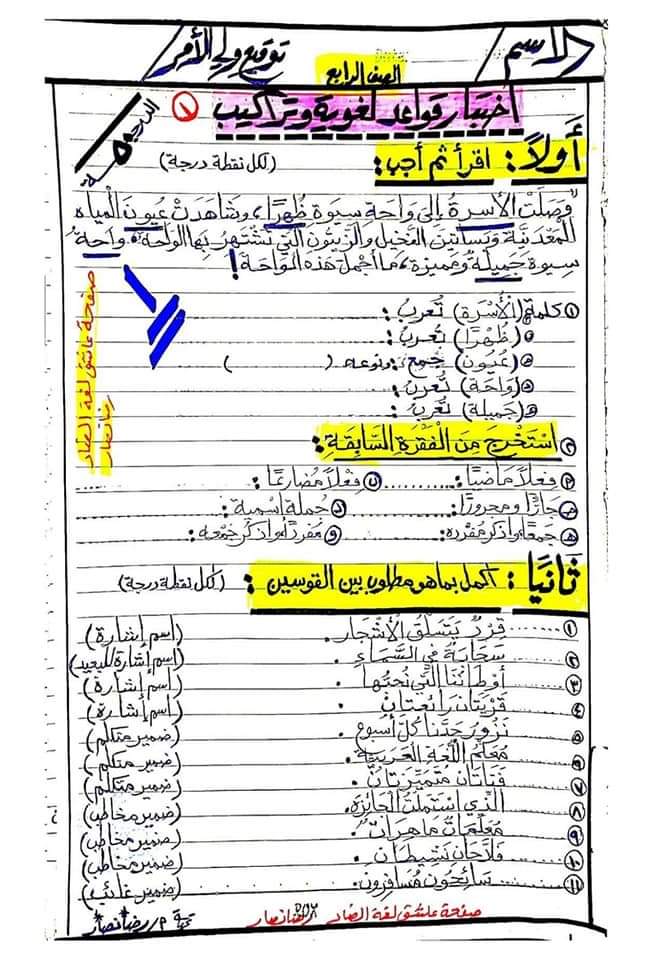 الاسم / توقيع ولي الأمر /
الصف الرابع
اختبار قواعد لغوية وتراكيب ١
الدرجة
أَولًا: اقرأ ثم أجب: (لكل نقطة درجة)
"وَصَلَتْ الأُسرَةُ إِلى وَاحَةِ سيوة ظُهرًا، وشاهَدَتْ عيونَ المياه
المَعدنيَّة وبَساتينَ النَّخيل والزيتون التي تَشتهر بِها الواحة. واحةُ
سيوة جَميلةٌ ومميزة، ما أجملَ هَذه الواحَةَ!
١ كلمة (الأُسْرَة) تُعربُ:
(ظُهْرًا) تُعرَبُ:
(عُيُون) جمع: ونوعه ( )
(وَاحَة) تُعْرَبُ:
(جَميلَة) تُعْرَبُ:
٢ اسْتَخْرِجَ مِنَ الْفِقْرَةِ السَّابِقَةِ:
أ فعلًا مَاضيًا: .......... ب فِعْلًا مُضارِعًا:
ج جَارًّا ومجرورًا: .......... د جُملة اسْمية:
هـ جَمعًا واذكر مُفرده: .......... و مُفردًا واذكر جَمْعه:
ثَانيًا: أكمل بما هو مطلوب بين القوسين: (لكل نقطة درجة)
١ .......... قِرْدٌ يَتَسلَّقُ الأَشْجَار. (اسم إشارة)
٢ .......... سَحابَةٌ في السَّمَاءِ. (اسم إشارة للبعيد)
٣ .......... أوطَانُنا الَّتي نُحبُّها. (اسم إشارة)
٤ .......... قَرْيَتَان رَائِعتَانْ. (اسم إشارة)
٥ .......... نَزُور جَدَّنا كُلَّ أُسبوع. (ضمير متكلم)
٦ .......... مُعَلِّمُ اللُّغة العَرَبيَّة. (ضمير متكلم)
٧ .......... فَتَاتَان مُتَمَيِّزَتَانْ. (ضمير متكلم)
٨ .......... الَّذي اسْتَلمْتَ الجَائزة. (ضمير مخاطب)
٩ .......... مُعلِّماتٌ ماهِراتٌ. (ضمير مخاطب)
١٠ .......... فَلَّاحَان نَشِيطَانِ. (ضمير مخاطب)
١١ .......... سَائِحُونَ مُسافِرونَ. (ضمير غائب)
صفحة عاشق لغة الضاد رضا نصار
تحية م/ رضا نصار
صفحة عاشق لغة الضاد
رضا نصار